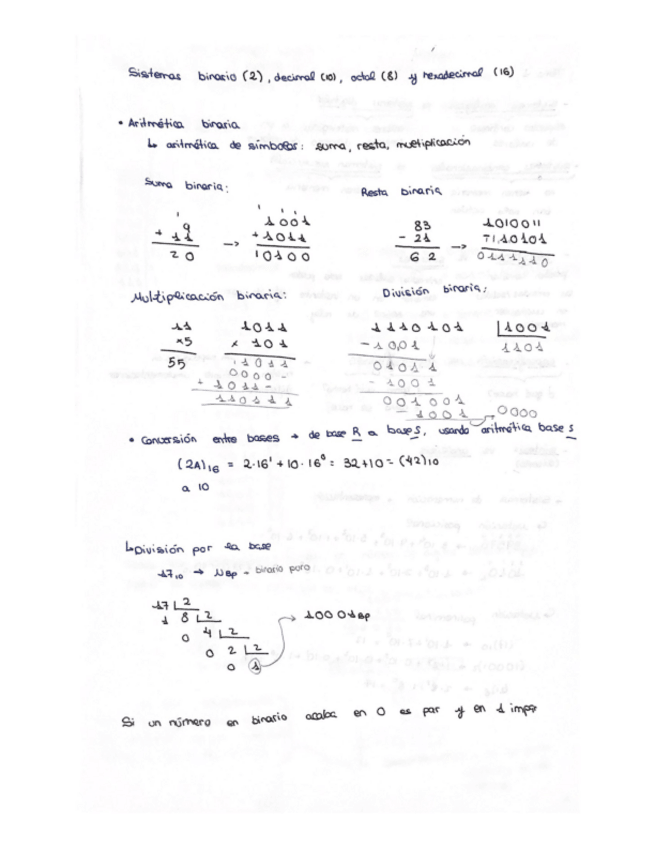 Sistemas binario (2), decimal (10), octal (8) y hexadecimal (16)
• Aritmética binaria
↳ aritmética de símbolos: suma, resta, multiplicación
Suma binaria:
Resta binaria
9
+ 11
20
→
1001
+ 1011
10100
83
- 21
62
→
1010011
10101
0111110
Multiplicación binaria:
División binaria:
11
x5
55
1011
x 101
1011
0000-
+ 1011-
110111
1110101 |1001
-1001 1101
01011
- 1001
001001
- 1001 → 0000
• Conversión entre bases → de base R a base S, usando aritmética base S
(2A)16 = 2·16¹ + 10·16⁰ = 32+10 = (42)10
a 10
↳ División por la base
17₁₀ → NBP - binario puro
17 |2
1 8 |2
0 4 |2
0 2 |2
0 1
→ 10001BP
Si un número en binario acaba en 0 es par y en 1 impar